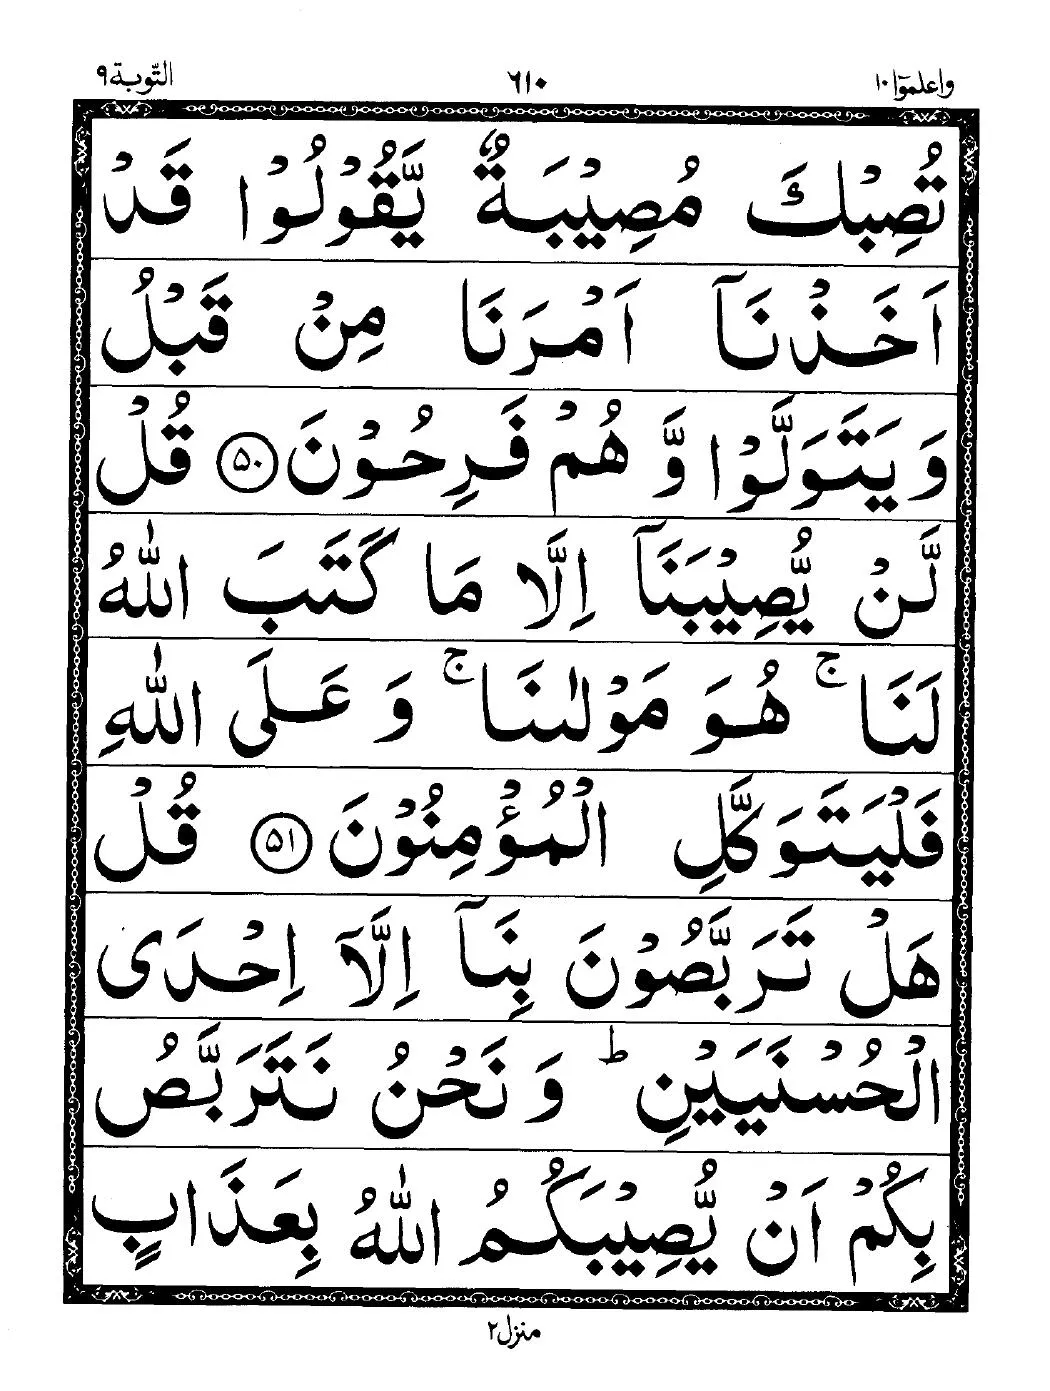 واعلموٓا ۱۰ ٦١٠ التّوبة ٩
تُصِبْكَ مُصِيْبَةٌ يَّقُوْلُوْا قَدْ
اَخَذْنَآ اَمْرَنَا مِنْ قَبْلُ
وَيَتَوَلَّوْا وَّهُمْ فَرِحُوْنَ ﴿۵۰﴾ قُلْ
لَّنْ يُّصِيْبَنَآ اِلَّا مَا كَتَبَ اللّٰهُ
لَنَا ۚ هُوَ مَوْلٰىنَا ۚ وَعَلَى اللّٰهِ
فَلْيَتَوَكَّلِ الْمُؤْمِنُوْنَ ﴿۵۱﴾ قُلْ
هَلْ تَرَبَّصُوْنَ بِنَآ اِلَّآ اِحْدَى
الْحُسْنَيَيْنِ ؕ وَنَحْنُ نَتَرَبَّصُ
بِكُمْ اَنْ يُّصِيْبَكُمُ اللّٰهُ بِعَذَابٍ
منزل ۲